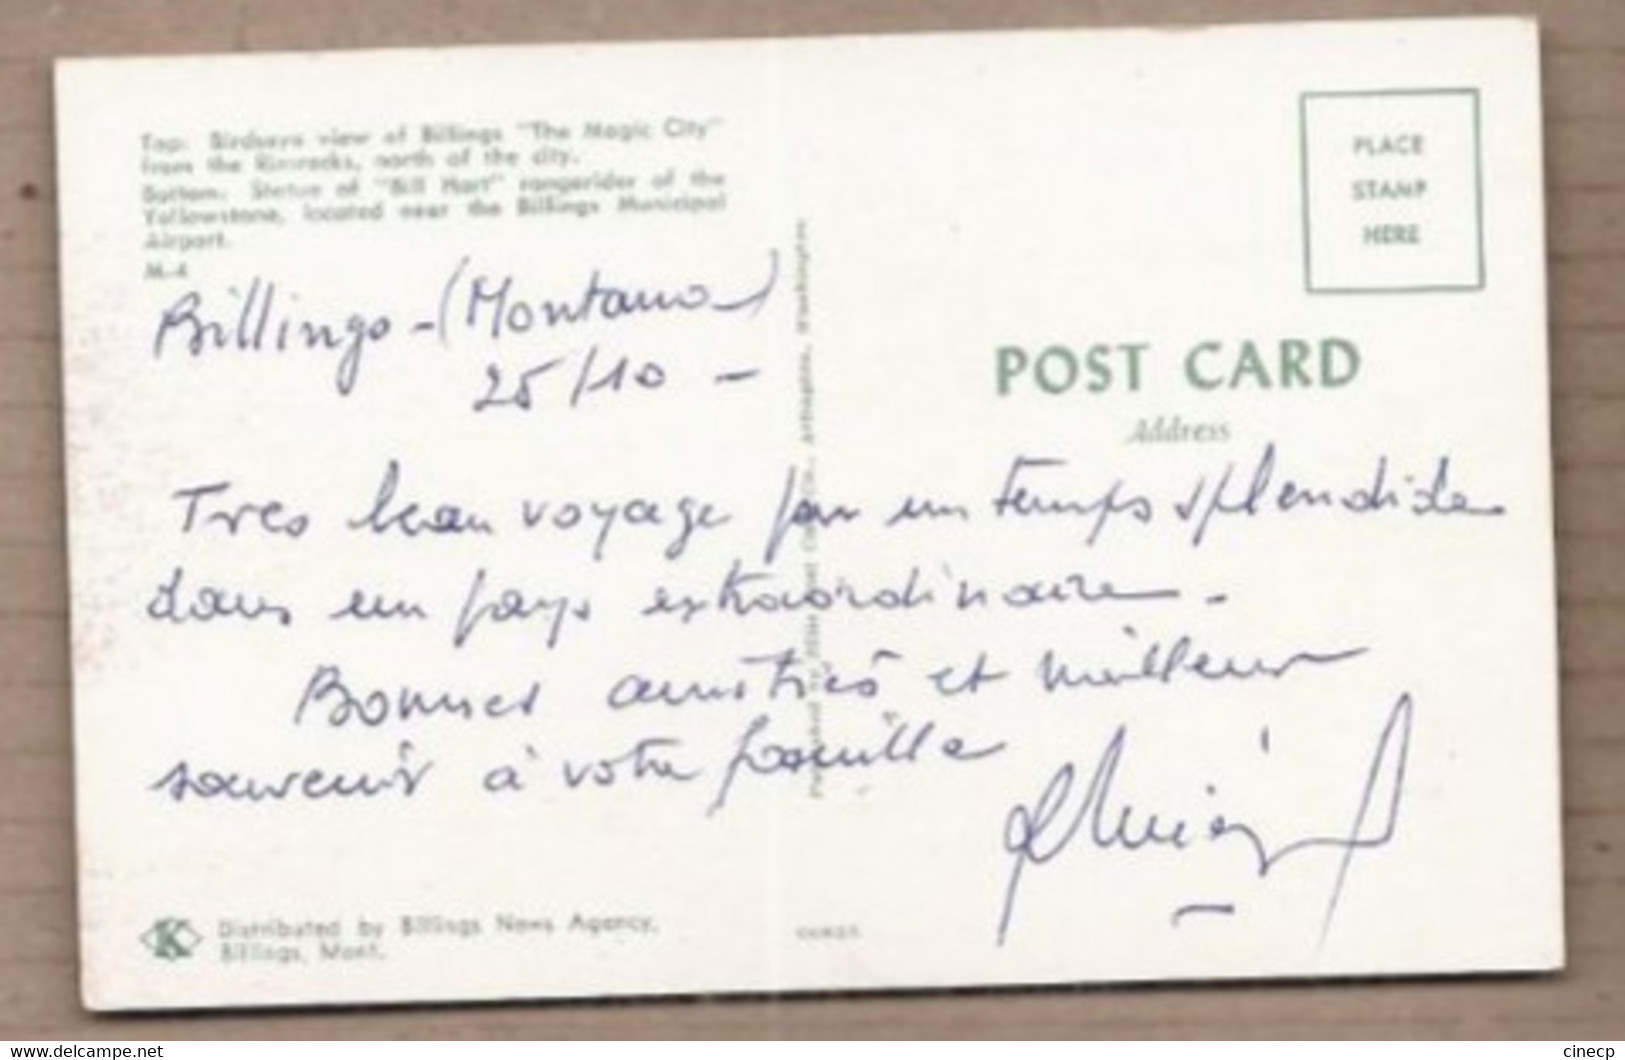 Top: Birdseye view of Billings "The Magic City"
from the Rimrocks, north of the city.
Bottom: Statue of "Bill Hart" rangerider of the
Yellowstone, located near the Billings Municipal
Airport.
M-4
Billings - (Montana)
25/10 -
Tres beau voyage par un temps splendide
dans un pays extraordinaire -
Bonnes amitiés et meilleur
souvenir à votre famille
Distributed by Billings News Agency,
Billings, Mont.
K
Arlington, Washington
PLACE
STAMP
HERE
POST CARD
Address
delcampe.net
cinecp